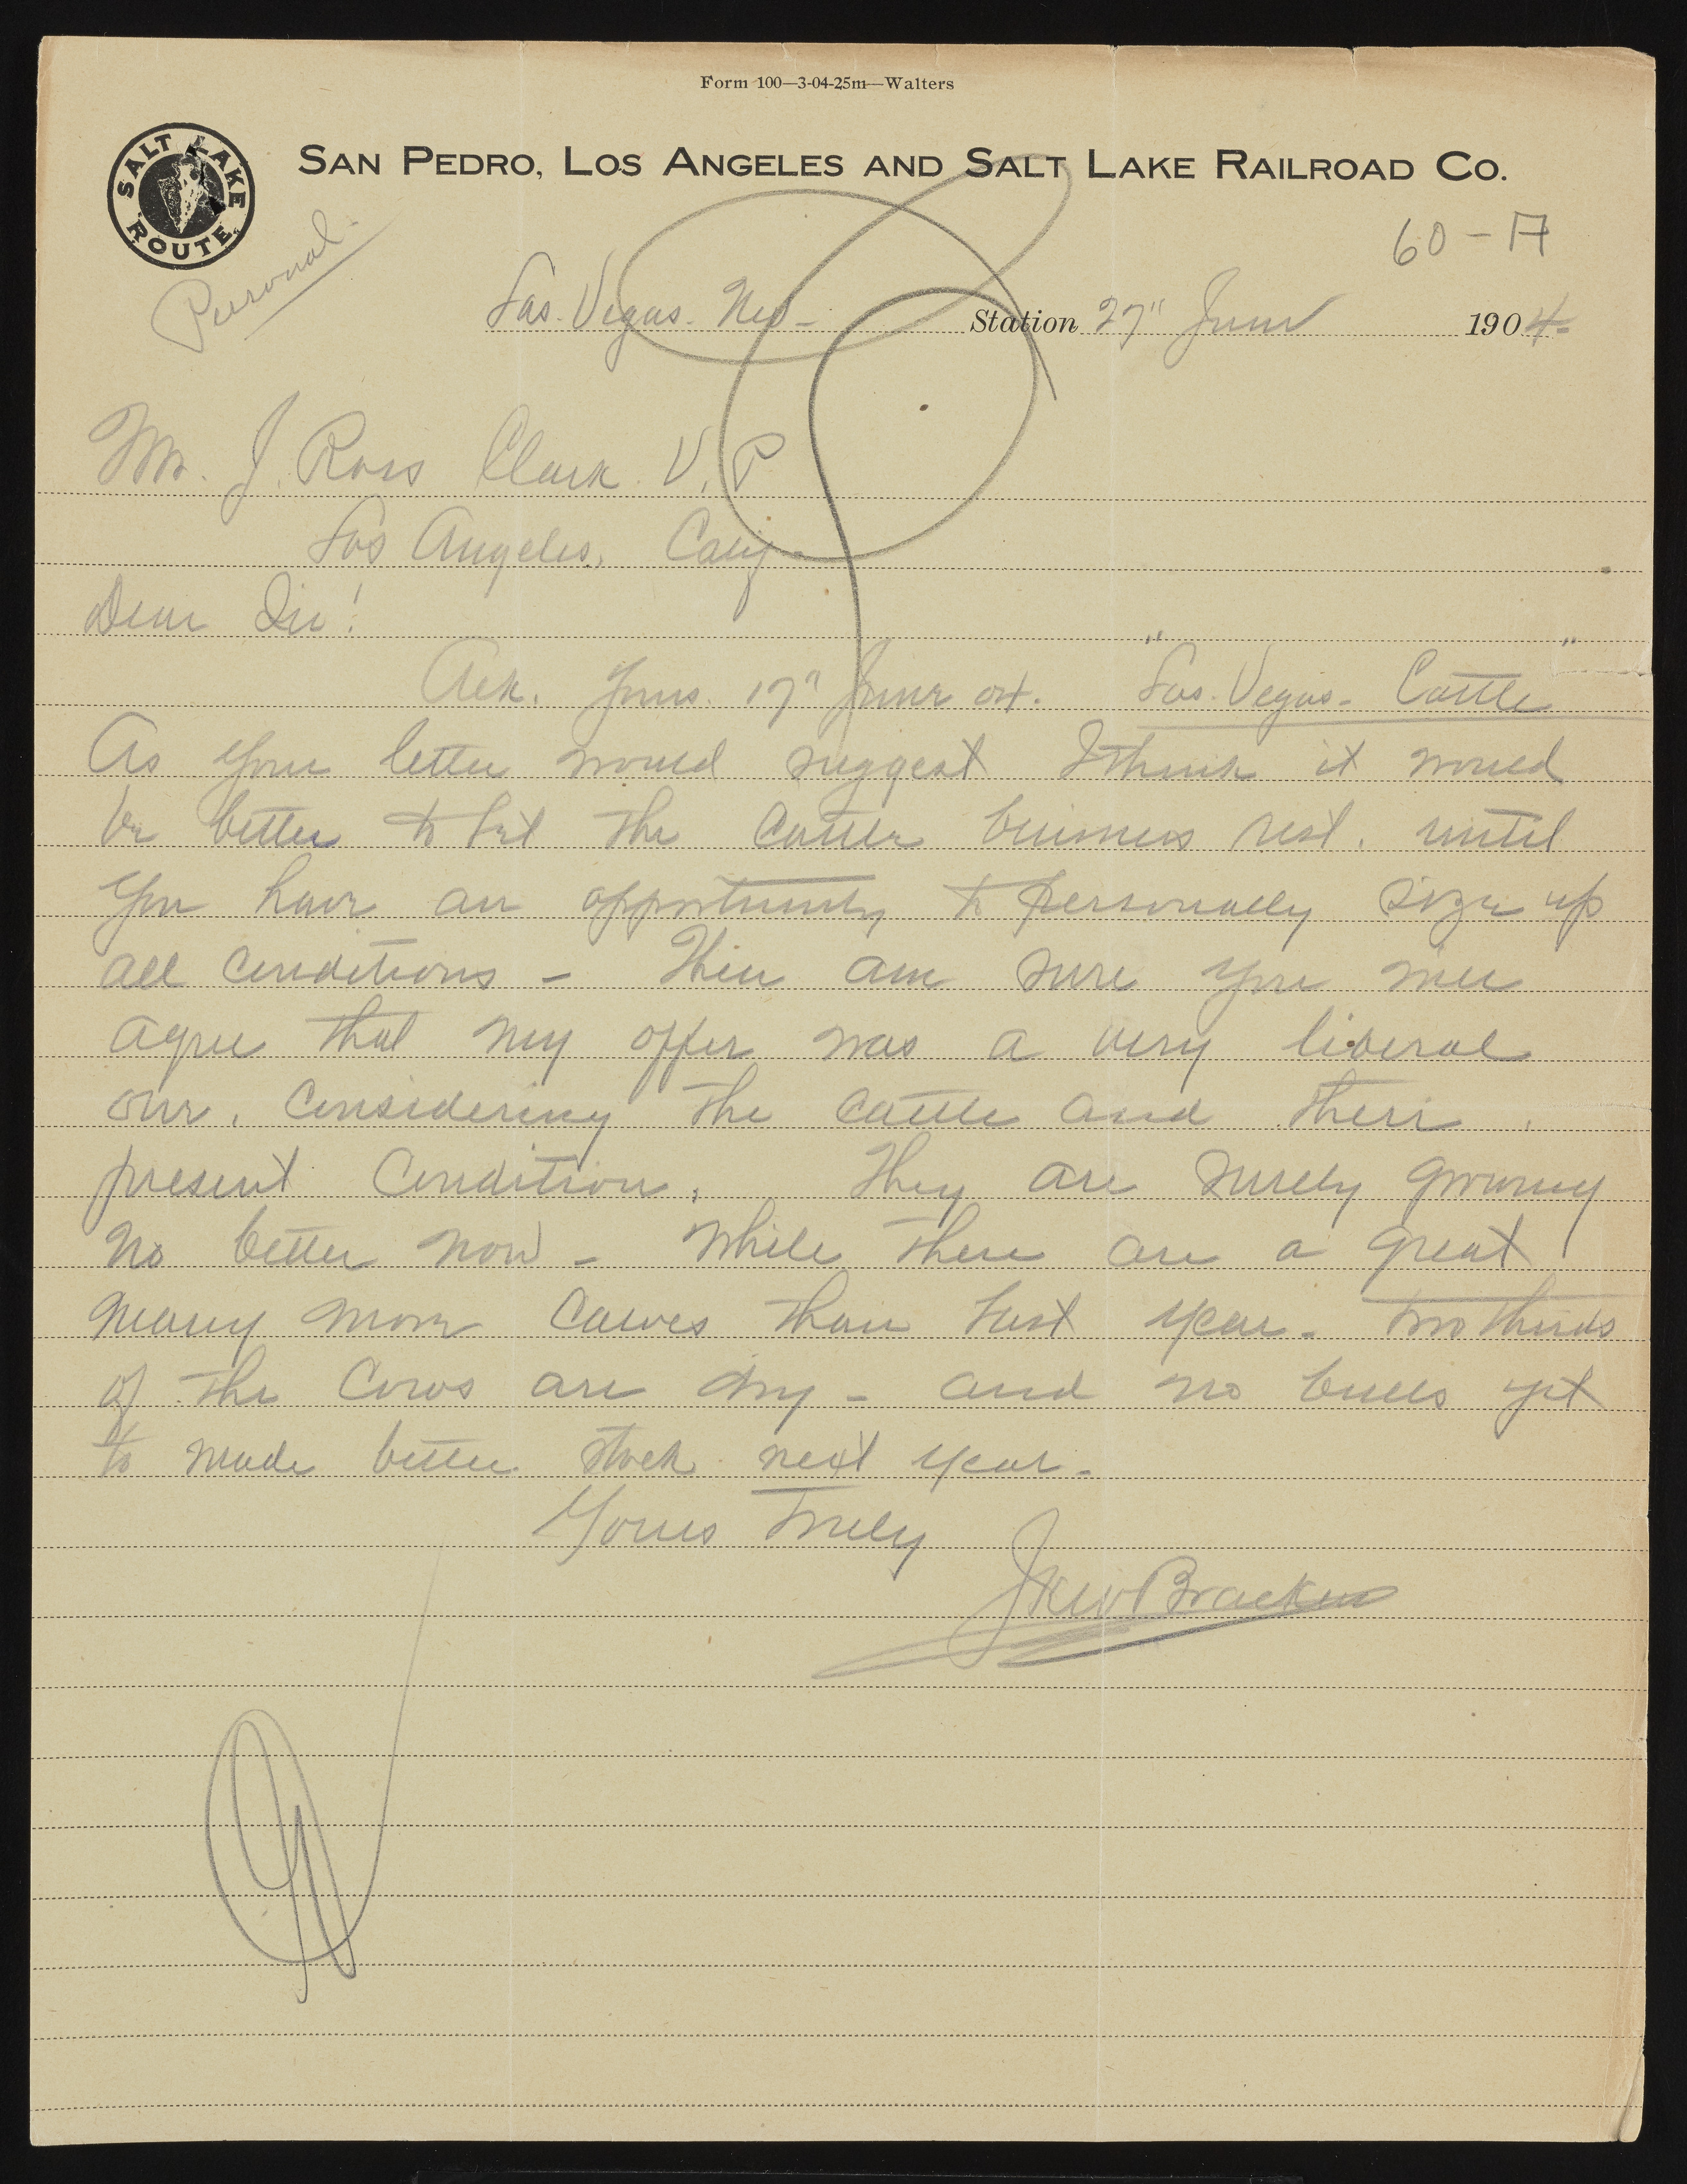 Form 100—3-04-25m—Walters
SALT LAKE ROUTE
SAN PEDRO, LOS ANGELES AND SALT LAKE RAILROAD CO.
60 - A
Personal -
Las. Vegas. Nev - Station 27" June 1904 -
Mr. J. Ross Clark. V. P
Los Angeles, Calif -
Dear Sir!
Ack. Yours. 17" June 04. "Las. Vegas - Cattle"
As your letter would suggest I think it would
be better to let the cattle business rest. until
you have an opportunity to personally size up
all conditions - Then am sure you will
agree that my offer was a very liberal
one, considering the cattle and their
present condition. They are surely growing
no better now - While there are a great
many more calves than last year - two thirds
of the cows are dry - and no bulls yet
to made better stock next year -
Yours Truly
Walter Bracken